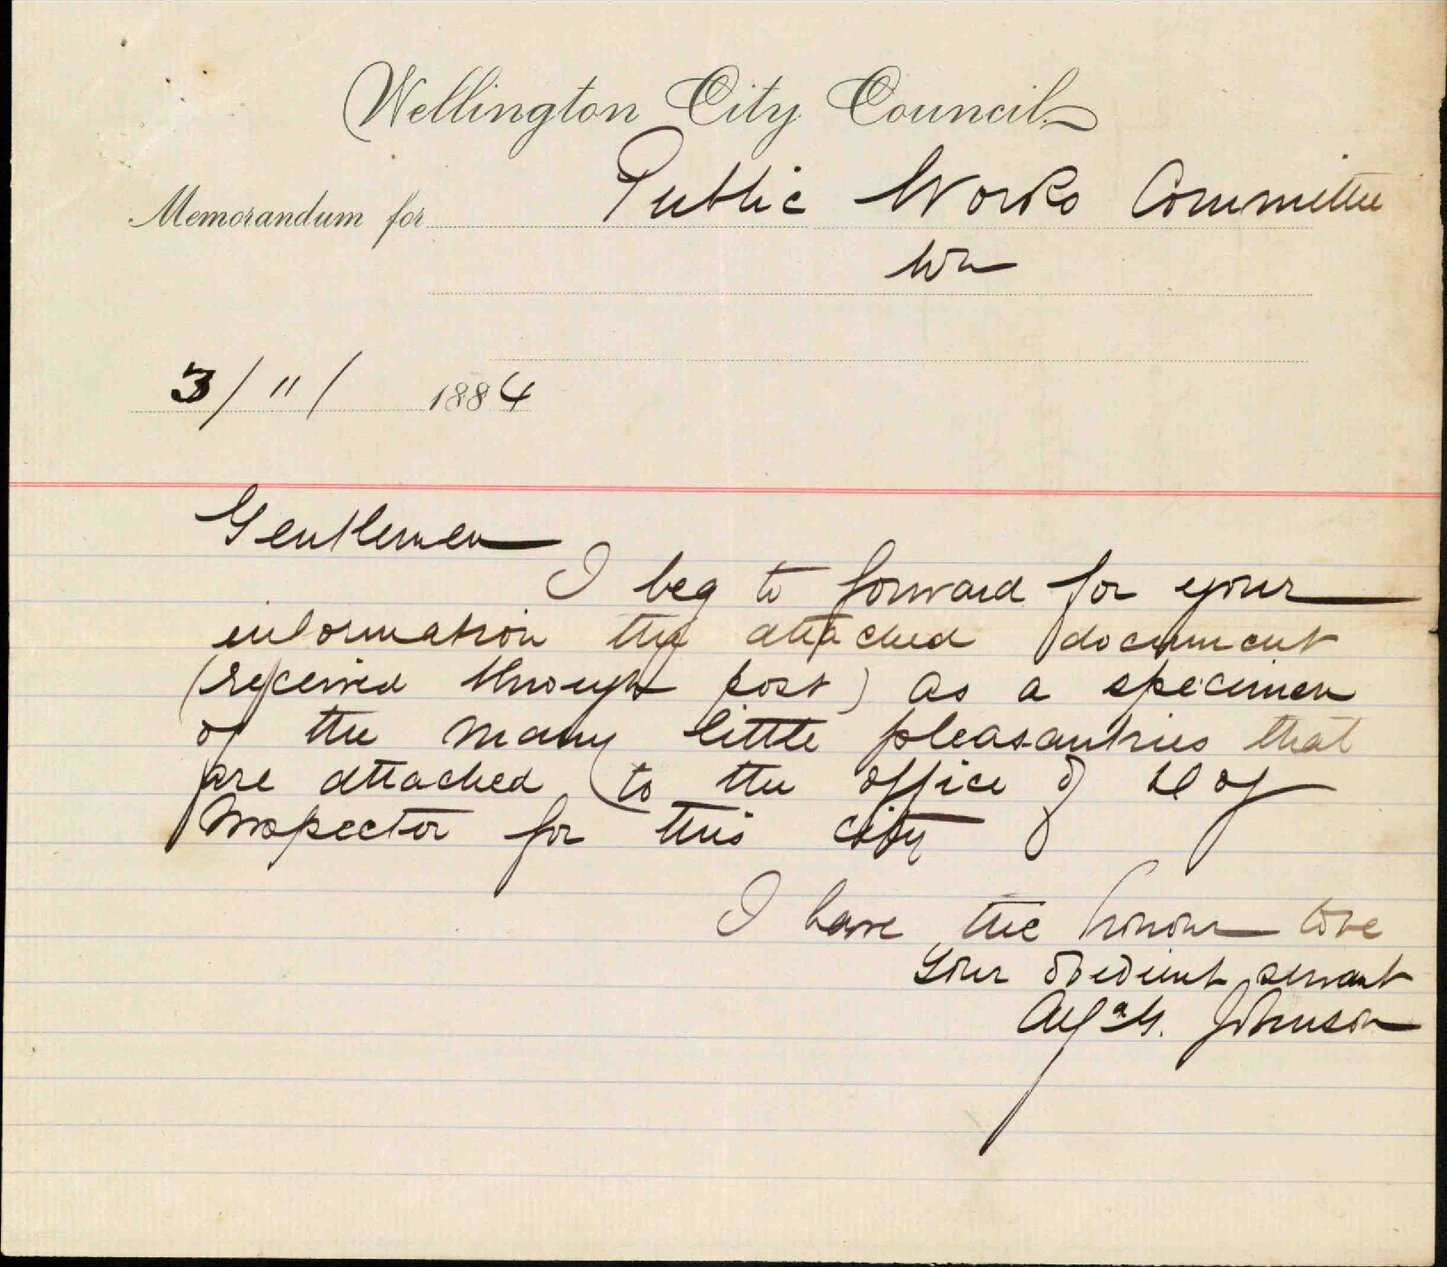 Wellington City Council
Memorandum for Public Works Committee
3/11/ 1884
Gentlemen
I beg to forward for your
information the attached document
(received through post) as a specimen
of the many little pleasantries that
are attached to the office of
Inspector for this city
I have the honour to be
Your obedient servant
Johnson